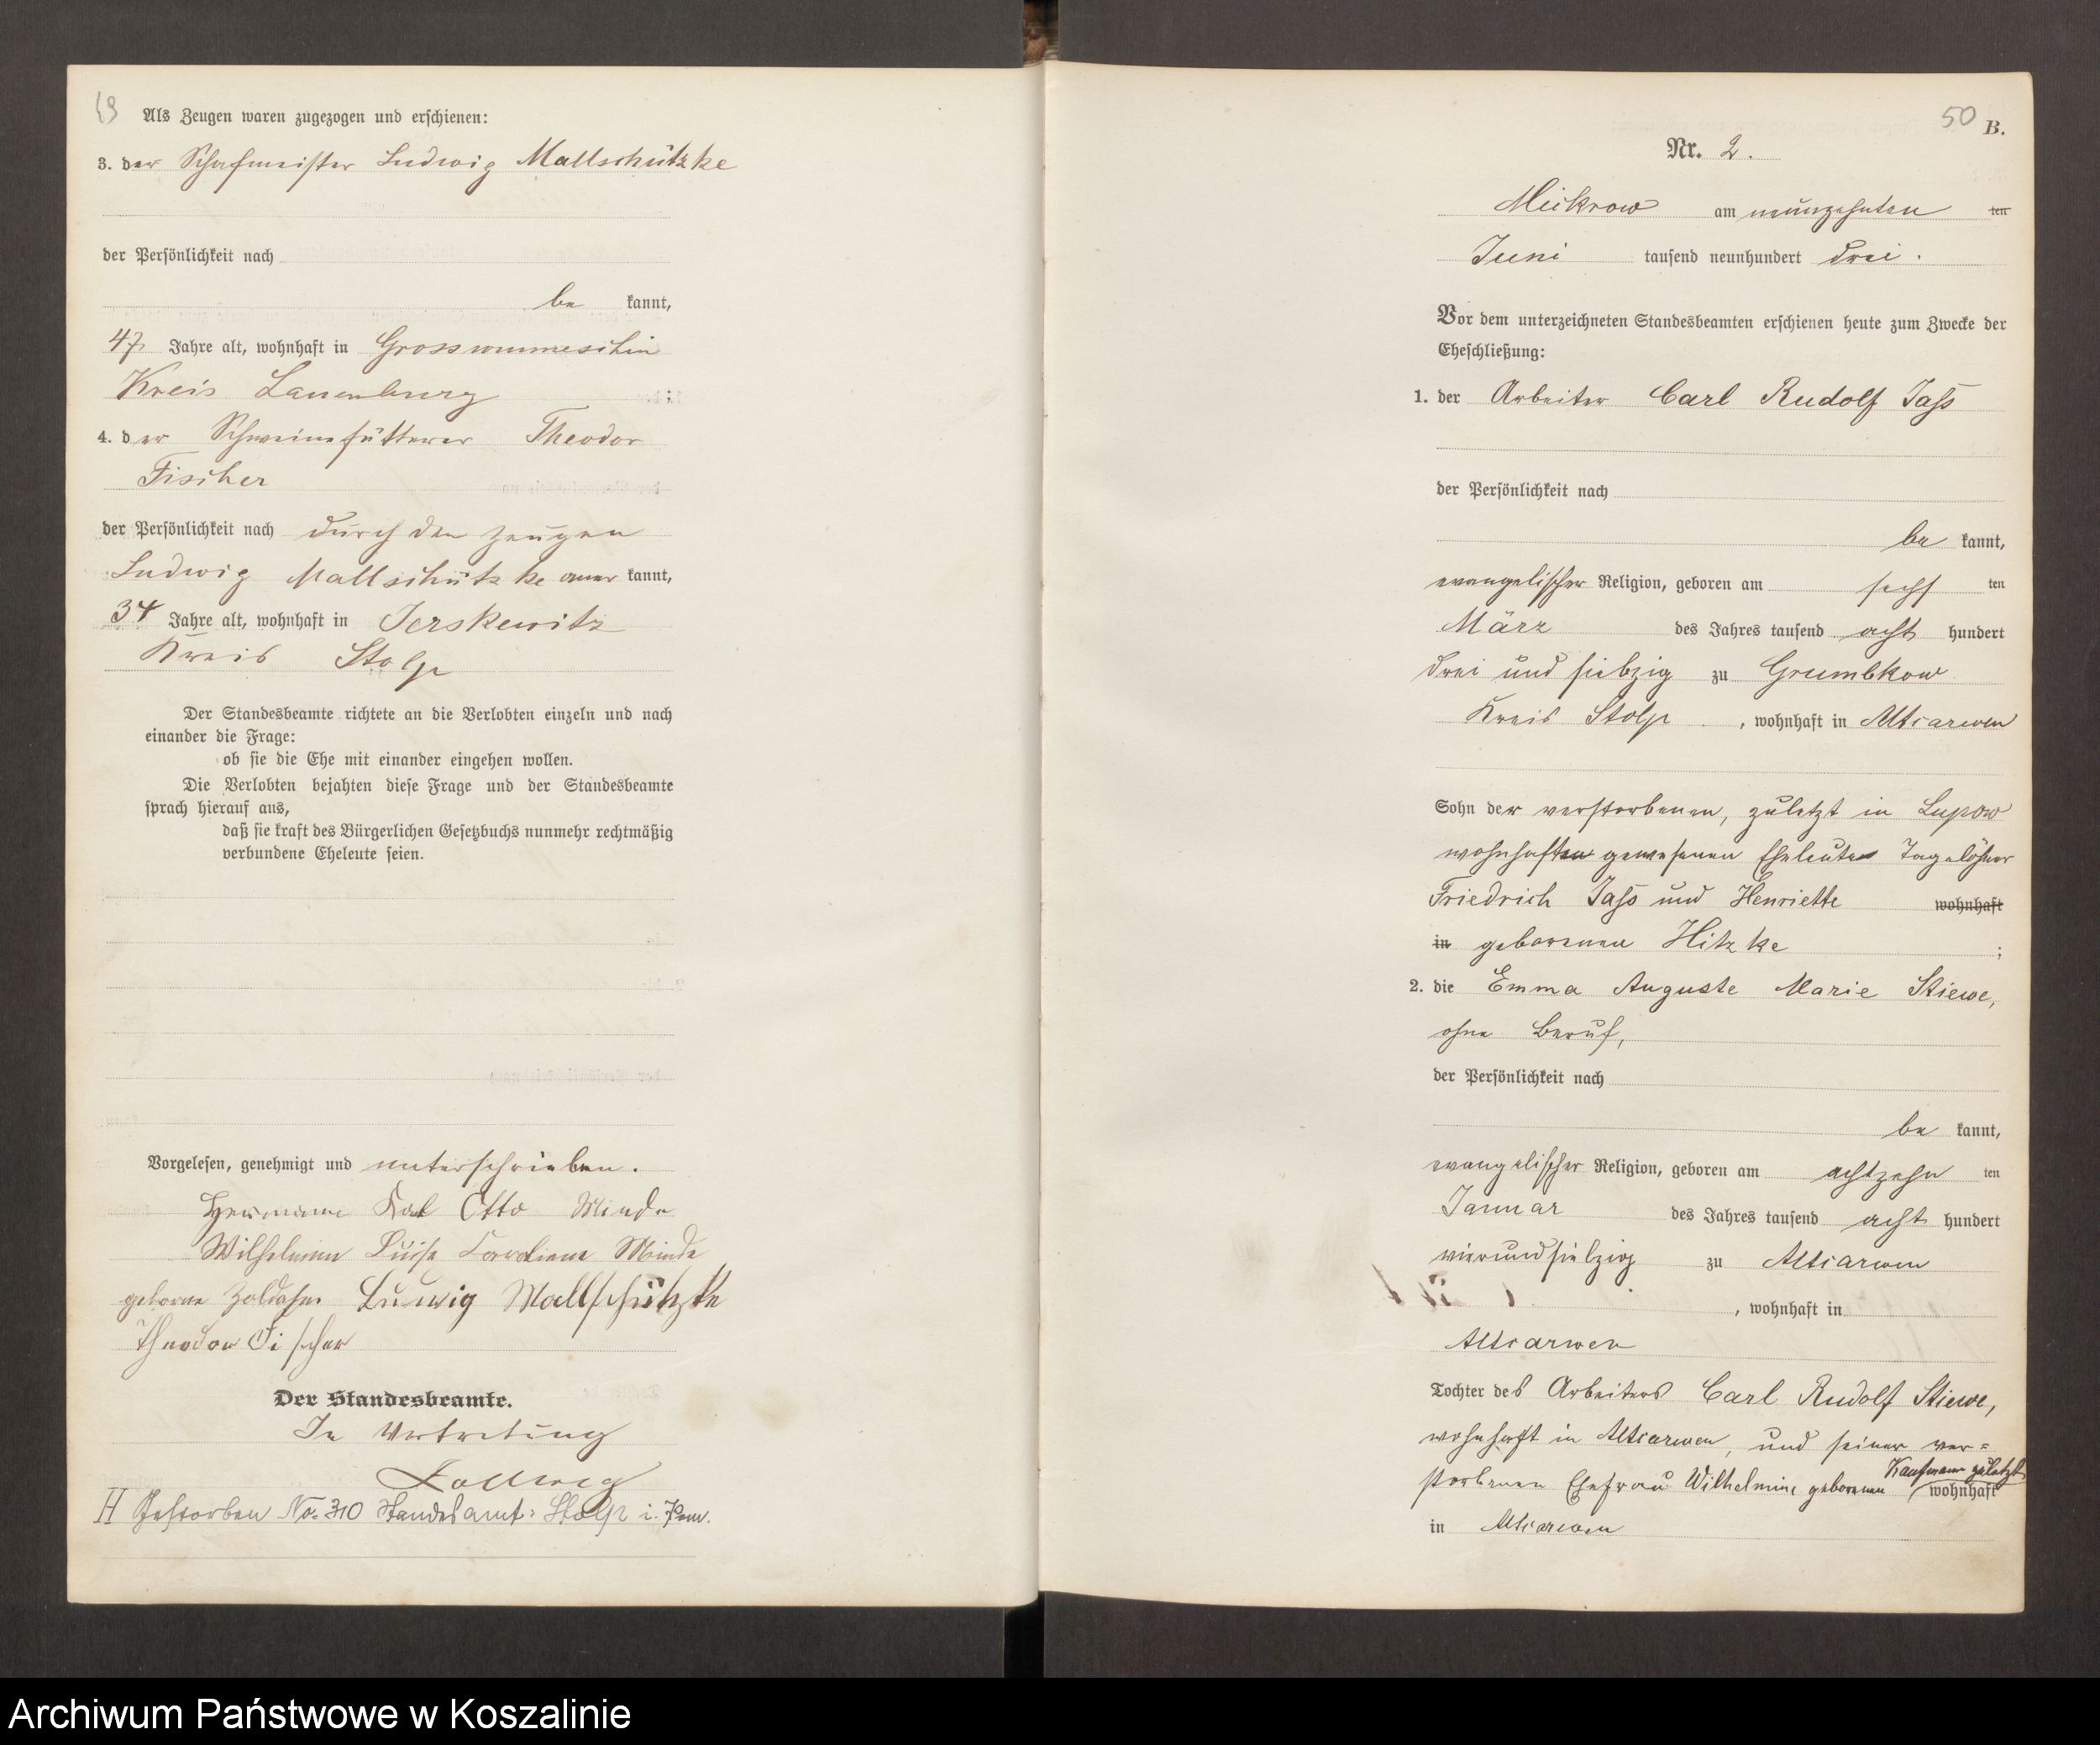 49
Als Zeugen waren zugezogen und erschienen:
3. der Schafmeister Ludwig Mallschützke
der Persönlichkeit nach
be kannt,
47 Jahre alt, wohnhaft in Grosswunneschin
Kreis Lauenburg ;
4. der Schweinefütterer Theodor
Fischer
der Persönlichkeit nach durch den Zeugen
Ludwig Mallschützke aner kannt,
34 Jahre alt, wohnhaft in Jerskewitz
Kreis Stolp
Der Standesbeamte richtete an die Verlobten einzeln und nach
einander die Frage:
ob sie die Ehe mit einander eingehen wollen.
Die Verlobten bejahten diese Frage und der Standesbeamte
sprach hierauf aus,
daß sie kraft des Bürgerlichen Gesetzbuchs nunmehr rechtmäßig
verbundene Eheleute seien.
Vorgelesen, genehmigt und unterschrieben.
Hermann Karl Otto Minde
Wilhelmine Luise Karoliene Minde
geborne Ludwig Mallschützke
Theodor Fischer
Der Standesbeamte.
In Vertretung
H Gestorben No. 310 Standesamt: Stolp i. Pom.
50
B.
Nr. 2.
Mickrow am neunzehnten ten
Juni tausend neunhundert drei.
Vor dem unterzeichneten Standesbeamten erschienen heute zum Zwecke der
Eheschließung:
1. der Arbeiter Carl Rudolf Jass
der Persönlichkeit nach
be kannt,
evangelischer Religion, geboren am sechs ten
März des Jahres tausend acht hundert
drei und siebzig zu Grumbkow
Kreis Stolp, wohnhaft in Altcarwen
Sohn der verstorbenen, zuletzt in Lupow
wohnhaft gewesenen Eheleute Tagelöhner
Friedrich Jass und Henriette wohnhaft
in geborenen Hitzke ;
2. die Emma Auguste Marie Stiewe,
ohne Beruf,
der Persönlichkeit nach
be kannt,
evangelischer Religion, geboren am achtzehn ten
Januar des Jahres tausend acht hundert
vierundsiebzig zu Altcarwen
, wohnhaft in
Altcarwen
Tochter des Arbeiters Carl Rudolf Stiewe,
wohnhaft in Altcarwen, und seiner ver=
storbenen Ehefrau Wilhelmine geborenen Kaufmann zuletzt wohnhaft
in Altcarwen
Archiwum Państwowe w Koszalinie